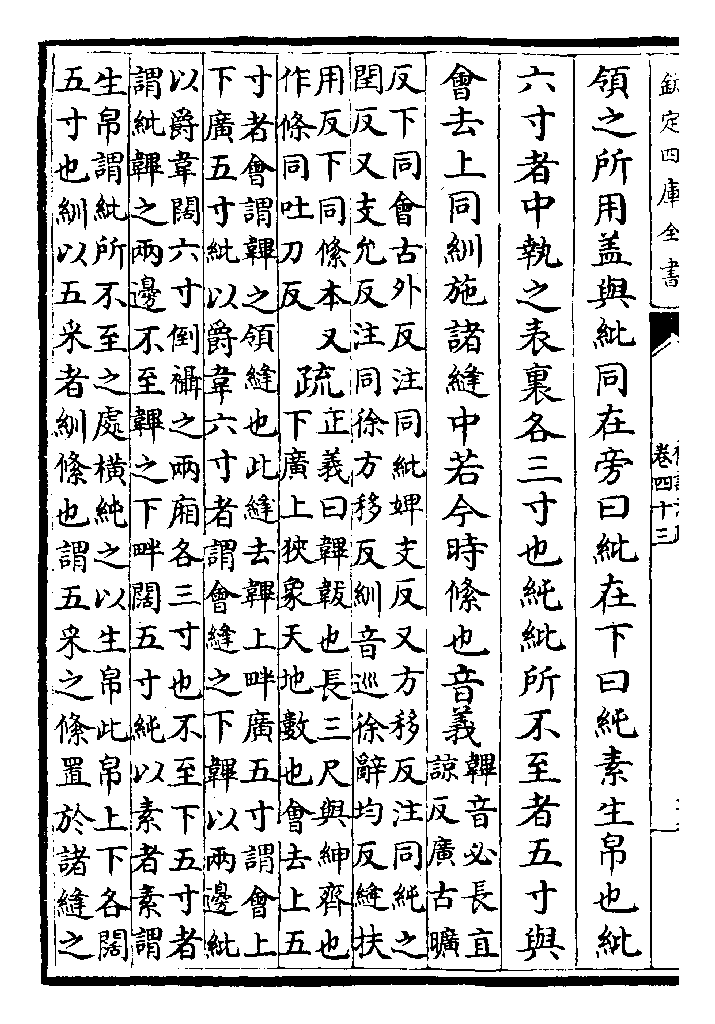 欽定四庫全書
卷四十三
領之所用盖與紕同在旁曰紕在下曰純素生帛也紕
六寸者中執之表裏各三寸也純紕所不至者五寸與
會去上同紃施諸縫中若今時絛也音義
韠音必長直
諒反廣古曠
反下同會古外反注同紕婢支反又方移反注同純之
閏反又支允反注同徐方移反紃音巡徐辭均反縫扶
用反下同絛本又
作條同吐刀反
疏
正義曰韠韍也長三尺與紳齊也
下廣上狹象天地數也會去上五
寸者會謂韠之領縫也此縫去韠上畔廣五寸謂會上
下廣五寸紕以爵韋六寸者謂會縫之下韠以兩邊紕
以爵韋闊六寸倒攝之兩廂各三寸也不至下五寸者
謂紕韠之兩邊不至韠之下畔闊五寸純以素者素謂
生帛謂紕所不至之處橫純之以生帛此帛上下各闊
五寸也紃以五采者紃絛也謂五采之絛置於諸縫之